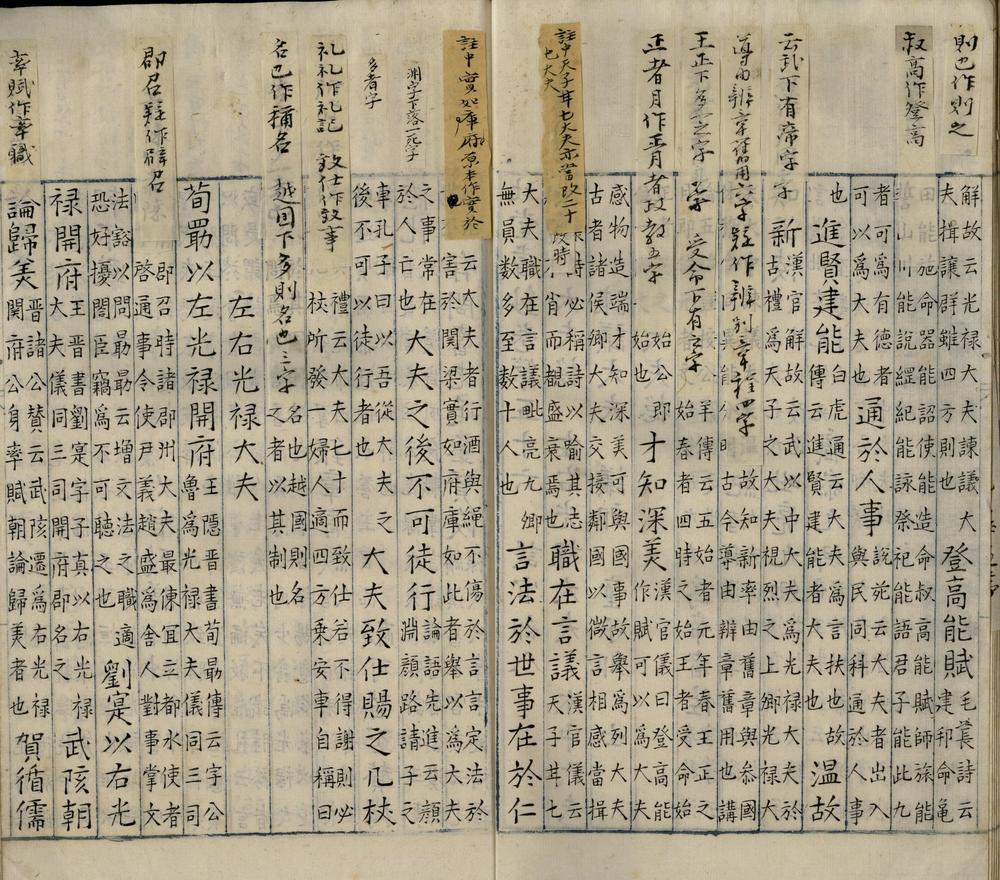 則也作則之
叔高作登高
云武下有帝字
導由辨章舊用六字疑作辨別章程四字
王正下多之字
受命下有之字
正者月作正月者政教五字
註中天子廾七大夫亦當改二十
七大夫
解故云光禄大夫諫議大
夫揖讓群雖四方則也
登高能賦
毛萇詩云
建邦命龜
田能施命器能造命叔高能賦師旅能
山川能說經紀能詠祭祀能語君子能此九
者可為有德者
可以為大夫也
通於人事
說苑云大夫者出入
與民同科通於人事
也
進賢建能
白虎通云大夫為言扶也故
傳云進賢建能者大夫也
溫故
新
漢官解故云武以中大夫為光禄大夫於
古禮為天子之大夫視烈之上卿光禄大
故知新率由舊章與參國
明古今導由辨章舊用講
始也
公羊傳云五始者元年春王正之
始春者四時之始王者受命始
始也即
才知深美
漢官儀曰登高能
作賦可以為大夫
感物造端才知深美可與國事故舉為列大夫
古者諸侯卿大夫交接鄰國以微言相感當揖
時必稱詩以喻其志
肖而觀盛衰焉
職在言議
漢官儀云
天子廾七
大夫職在言議毗亮九卿
無員數多至數十人也
言法於世事在於仁
註中實如庫府原本作實於
渊字下落一死字
多者字
礼礼作礼記 致仕作致事
古已作稱名 越国下多則名也三字
郡召疑作辟召
率賦作率職
云大夫者行酒與繩不傷於言言定法於
害於関梁實如府庫如此者舉以為大夫
之事常在
於人亡也
大夫之後不可徒行
論語先進云顏
淵顏路請子之
車孔子曰以吾從大夫之
後不可以徒行者也
大夫致仕賜之几杖
禮云大夫七十而致仕若不得謝則必
杖所發一婦人適四方乘安車自稱曰
名也越國則名
之者以其制也
左右光禄大夫
荀勗以左光禄開府
王隱晋書荀最傳云字公
魯為光禄大夫儀同三司
郡召時諸郡州大夫最傔冝立都水使者
啓通事令使尹義趙盛為舍人對事掌文
法谿以問最最云增文法之職適
恐好擾閤臣竊為不可聽之也
劉寔以右光
禄開府
王晋書劉寔字子真以右光禄
大夫儀同三司開府郡名之
武陔朝
論歸美
晋諸公賛云武陔遷為右光禄
開府公身率賦朝論歸美者也
賀循儒